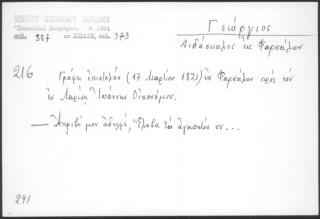 ΙΩΑΝΝΟΥ ΟΙΚΟΝΟΜΟΥ ΛΑΡΙΣΑΙΟΥ
"Επιστολαί Διαφόρων, Θ. 1964
σελ. 387 — ΚΩΔΙΞ, σελ. 373
Γεώργιος
Διδάσκαλος ἐκ Φαρσάλων
216
Γράφει ἐπιστολὴν (17 Μαρτίου 1821) ἐκ Φαρσάλων πρὸς τὸν
ἐν Λαρίσῃ Ἰωάννην Οἰκονόμον.
— Ἀκριβέ μου ἀδελφέ, Ἔλαβα τὸ ἀγαπητόν σ...
291